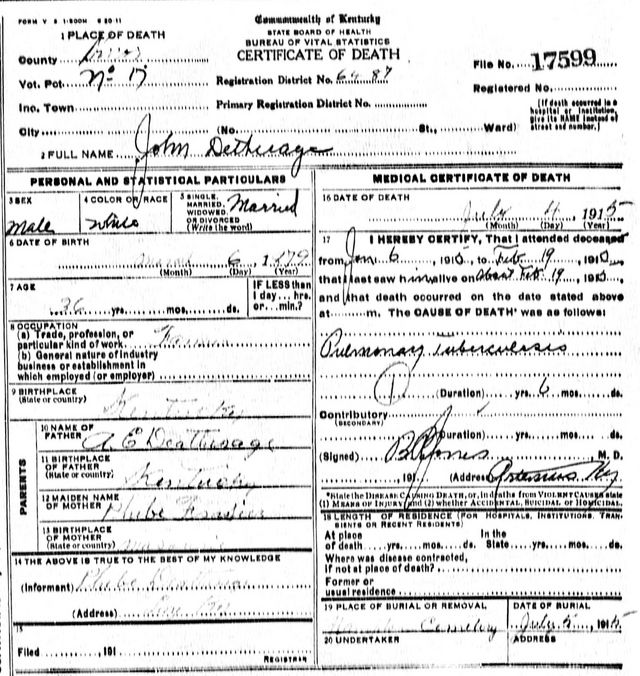 FORM V S 1-500M 8 20-11
Commonwealth of Kentucky
STATE BOARD OF HEALTH
BUREAU OF VITAL STATISTICS
CERTIFICATE OF DEATH
1 PLACE OF DEATH
County
Vot. Pct No 17
Inc. Town
City (No. St., Ward)
Registration District No. 6487
Primary Registration District No.
File No. 17599
Registered No.
[If death occurred in a hospital or institution, give its NAME instead of street and number.]
2 FULL NAME John Detherage
PERSONAL AND STATISTICAL PARTICULARS
3 SEX
Male
4 COLOR OR RACE
White
5 SINGLE, MARRIED, WIDOWED OR DIVORCED (Write the word)
Married
6 DATE OF BIRTH
6 1879
(Month) (Day) (Year)
7 AGE
36 yrs. mos. ds.
IF LESS than 1 day... hrs. or... min.?
8 OCCUPATION
(a) Trade, profession, or particular kind of work Farmer
(b) General nature of industry
business or establishment in
which employed (or employer)
9 BIRTHPLACE
(State or country)
Kentucky
PARENTS
10 NAME OF FATHER
A E Deatherage
11 BIRTHPLACE OF FATHER
(State or country)
Kentucky
12 MAIDEN NAME OF MOTHER
Phebe
13 BIRTHPLACE OF MOTHER
(State or country)
14 THE ABOVE IS TRUE TO THE BEST OF MY KNOWLEDGE
(Informant) Phebe
(Address)
15
Filed 191
REGISTRAR
MEDICAL CERTIFICATE OF DEATH
16 DATE OF DEATH
July 4, 1915
(Month) (Day) (Year)
17 I HEREBY CERTIFY, That I attended deceased
from Jan 6, 1915, to Feb 19, 1915,
that I last saw him alive on About Feb 19, 1915,
and that death occurred on the date stated above
at m. The CAUSE OF DEATH* was as follows:
Pulmonary Tuberculosis
(Duration) yrs. 6 mos. ds.
Contributory
(SECONDARY)
(Duration) yrs. mos. ds.
(Signed) Jones M. D.
191 (Address) Artemus Ky
*State the DISEASE CAUSING DEATH, or, in deaths from VIOLENT CAUSES state
(1) MEANS OF INJURY; and (2) whether ACCIDENTAL, SUICIDAL or HOMICIDAL.
18 LENGTH OF RESIDENCE (FOR HOSPITALS, INSTITUTIONS, TRANSIENTS OR RECENT RESIDENTS)
At place of death yrs. mos. ds. In the State yrs. mos. ds.
Where was disease contracted,
if not at place of death?
Former or
usual residence
19 PLACE OF BURIAL OR REMOVAL
Cemetery
DATE OF BURIAL
July 5, 1915
20 UNDERTAKER
ADDRESS